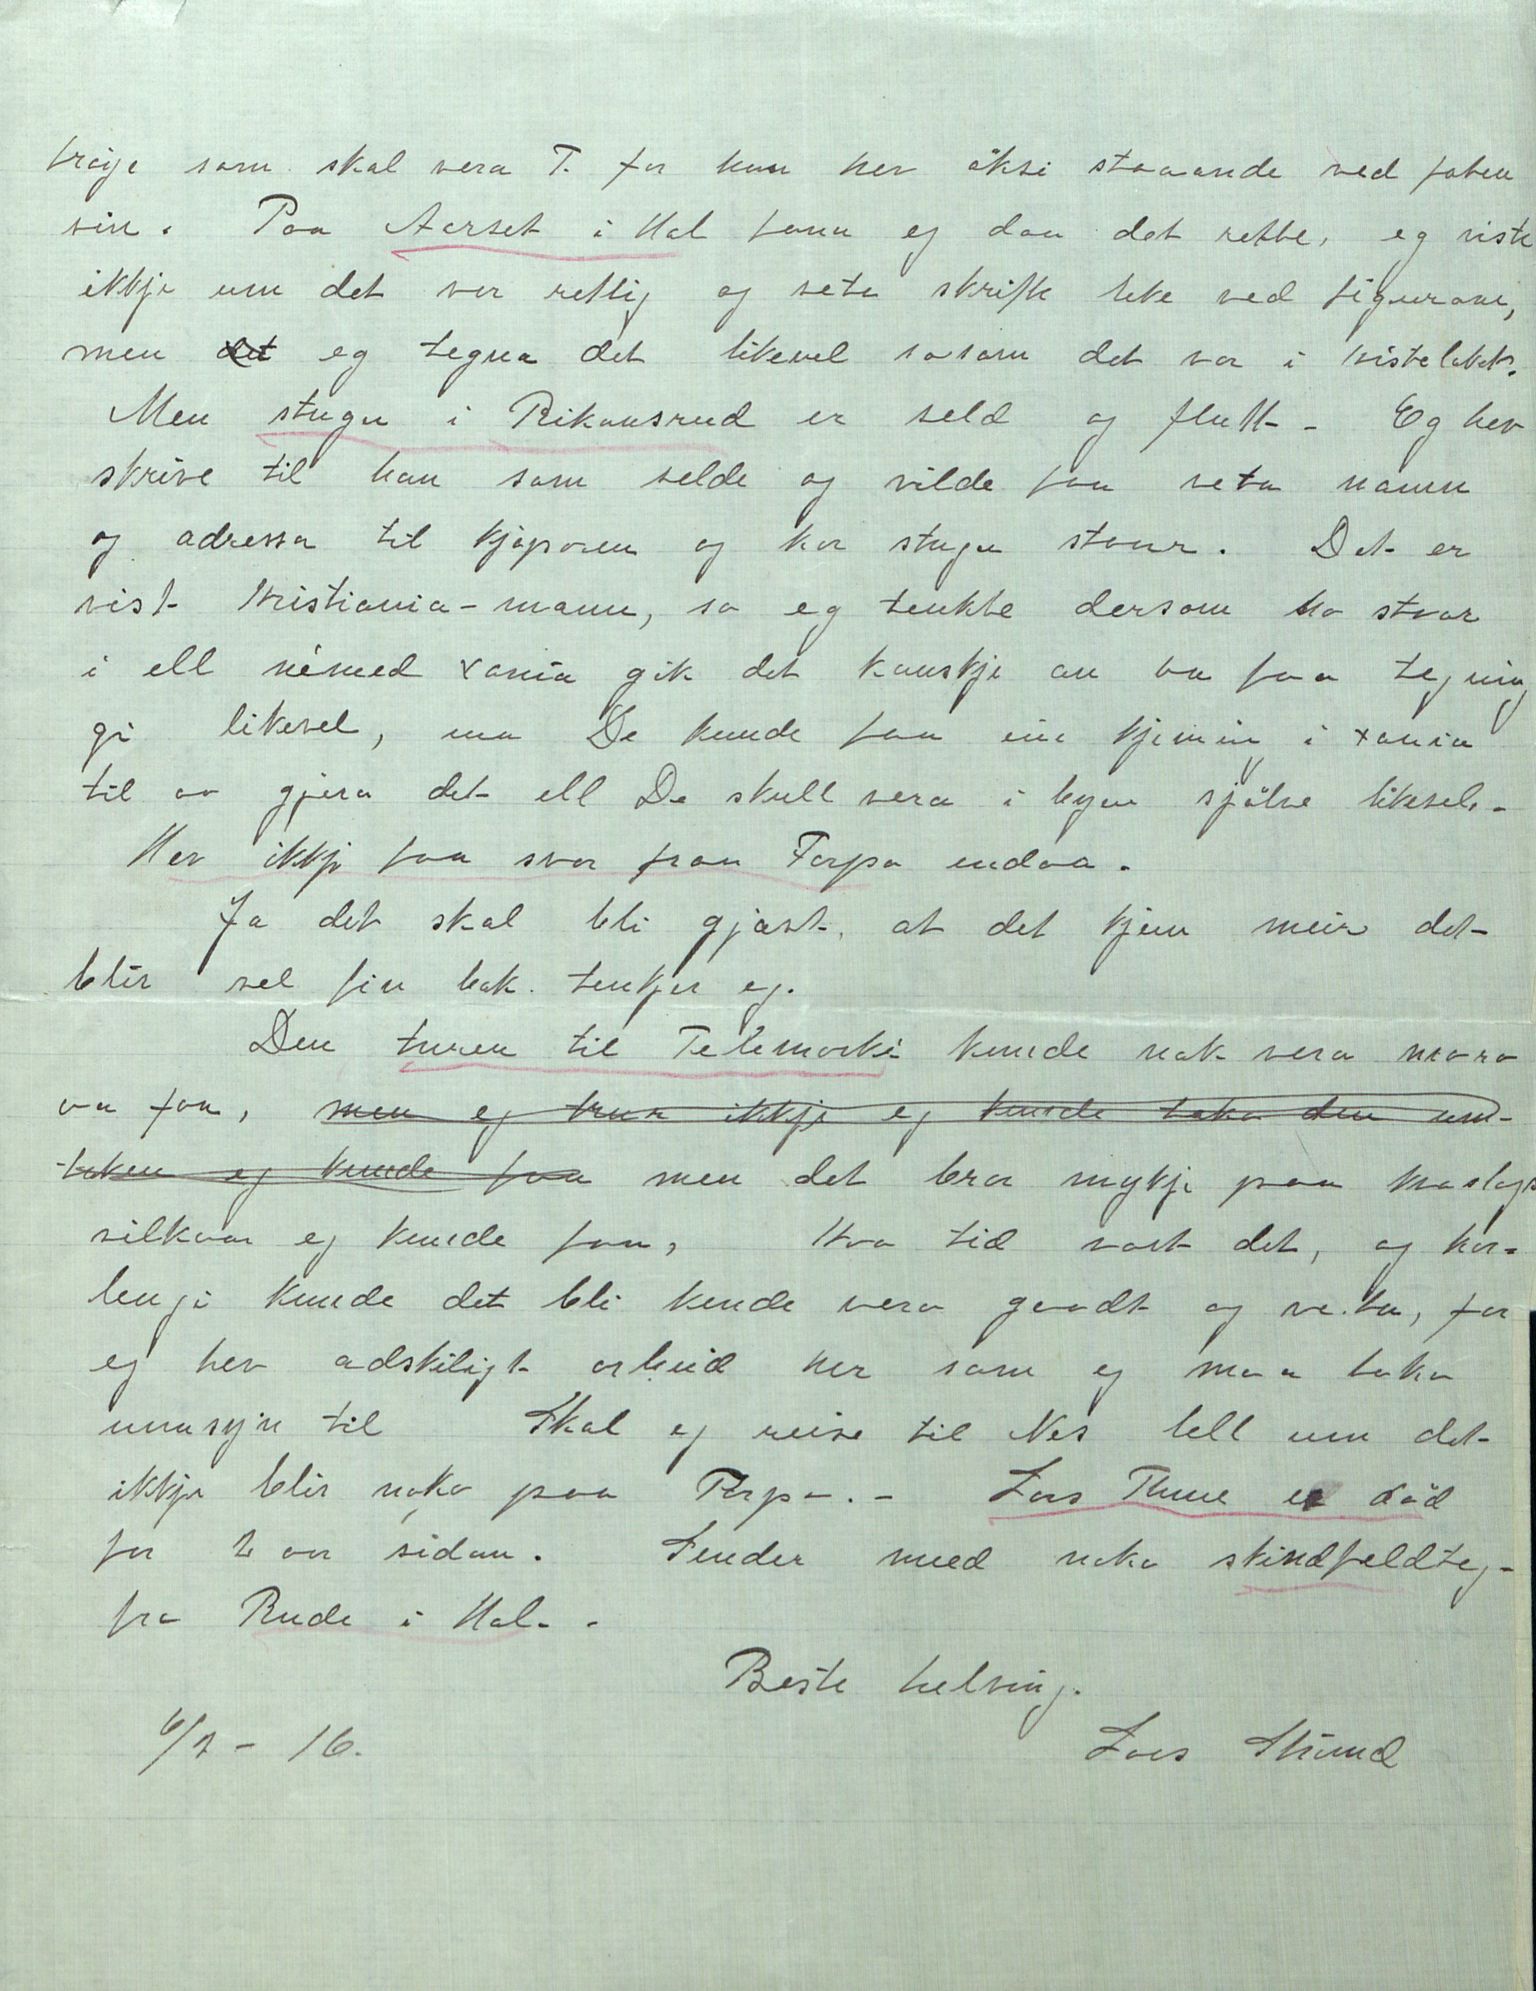 frøys som skal vera T. for han hev øksi staaande ved foten
sin. Paa Aarset i Hol fann eg daa det rette, eg viste
ikkje um det var rettig og seta skrifti like ved figurane,
men det eg tegna det likevel sosom det var i kistelaket.
Men stugu i Rikansrud er seld og flutt - Eg hev
skrive til han som selde og vilde faa veta namn
og adressa til kjøparen og kor stugu staar. Det er
vist Kristiania-mann, so eg tenkte dersom ho staar
i ell némed Xania gik det kanskje an aa faa tegnin
gi likevel, um De kunde faa ein kjenning i Xania
til aa gjera det ell De skull vera i byen sjølve likevel.-
Hev ikkje faa svar fraa Torpa endaa.
Ja det skal bli gjævt, at det kjem meir det
blir vel fin bok tenkjer eg.
Den turen til Telemarki kunde nok vera moro
aa faa, men eg trur ikkje eg kunde taka den um-
men det bror mykje paa kvaslags
vilkaar eg kunde faa, Kva tid vart det, og kor-
lengi kunde det bli kunde vera godt og veta, for
eg hev adskiligt arbeid her som eg maa taka
umsyn til Skal eg reise til Nes lell um det
ikkje blir noko paa Torpa. - Lars Thune er død
for 2 aar sidan. Sender med noko skindfeldteg-
fra Rude i Hol. -
Beste helsing.
6/2 - 16. Lars Strund